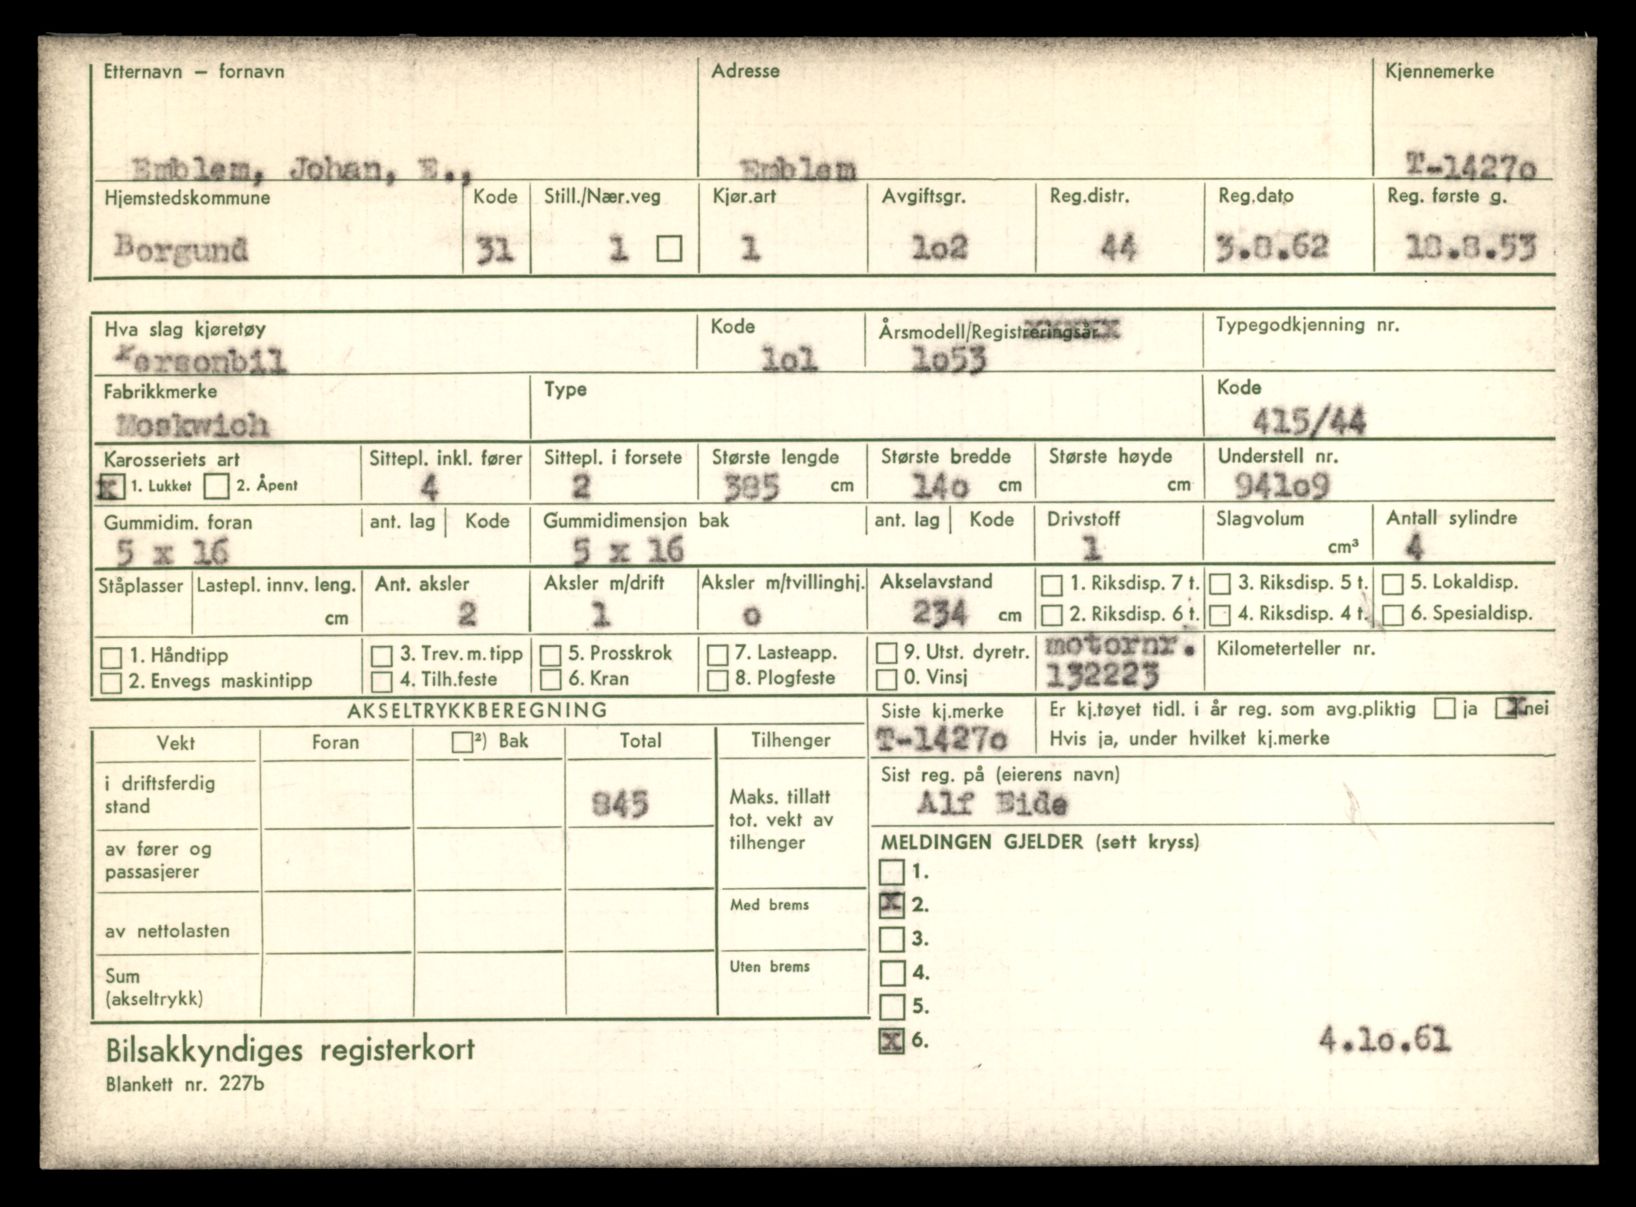 Etternavn – fornavn Adresse Kjennemerke
Emblem, Johan, E., Emblem T-1427o
Hjemstedskommune Kode Still./Nær.veg Kjør.art Avgiftsgr. Reg.distr. Reg.dato Reg. første g.
Borgund 31 1 1 1o2 44 3.8.62 18.8.53
Hva slag kjøretøy Kode Årsmodell/Registreringsår Typegodkjenning nr.
Personbil 1o1 1o53
Fabrikkmerke Type Kode
Moskwich 415/44
Karosseriets art Sittepl. inkl. fører Sittepl. i forsete Største lengde Største bredde Største høyde Understell nr.
x 1. Lukket 2. Åpent 4 2 385 cm 14o cm cm 941o9
Gummidim. foran ant. lag Kode Gummidimensjon bak ant. lag Kode Drivstoff Slagvolum Antall sylindre
5 x 16 5 x 16 1 cm³ 4
Ståplasser Lastepl. innv. leng. Ant. aksler Aksler m/drift Aksler m/tvillinghj. Akselavstand 1. Riksdisp. 7 t. 3. Riksdisp. 5 t. 5. Lokaldisp.
cm 2 1 o 234 cm 2. Riksdisp. 6 t. 4. Riksdisp. 4 t. 6. Spesialdisp.
1. Håndtipp 3. Trev. m. tipp 5. Prosskrok 7. Lasteapp. 9. Utst. dyretr. motornr. Kilometerteller nr.
2. Envegs maskintipp 4. Tilh.feste 6. Kran 8. Plogfeste 0. Vinsj 132223
AKSELTRYKKBEREGNING Siste kj.merke Er kj.tøyet tidl. i år reg. som avg.pliktig ja x nei
Vekt Foran ²) Bak Total Tilhenger T-1427o Hvis ja, under hvilket kj.merke
i driftsferdig
stand 845
Maks. tillatt
tot. vekt av
tilhenger
Sist reg. på (eierens navn)
Alf Eide
av fører og
passasjerer
MELDINGEN GJELDER (sett kryss)
1.
Med brems x 2.
av nettolasten 3.
Sum
(akseltrykk)
Uten brems 4.
5.
x 6. 4.1o.61
Bilsakkyndiges registerkort
Blankett nr. 227b